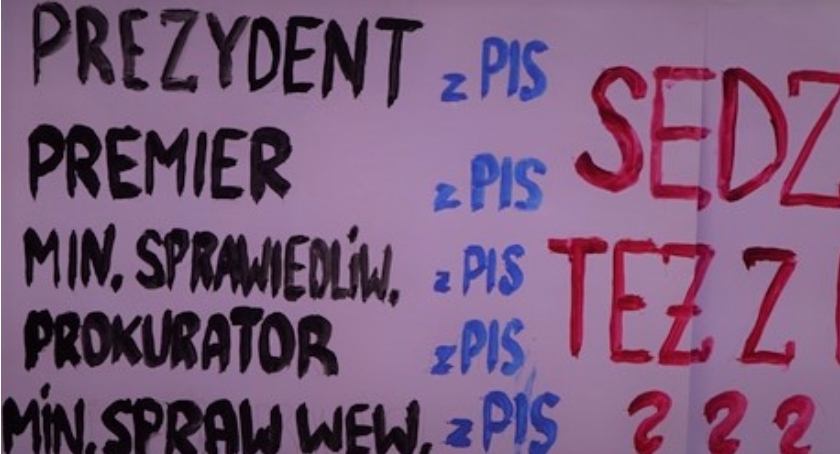 PREZYDENT z PIS
PREMIER z PIS
MIN. SPRAWIEDLIW. z PIS
PROKURATOR z PIS
MIN. SPRAW WEW. z PIS
SEDZ
TEŻ Z
???